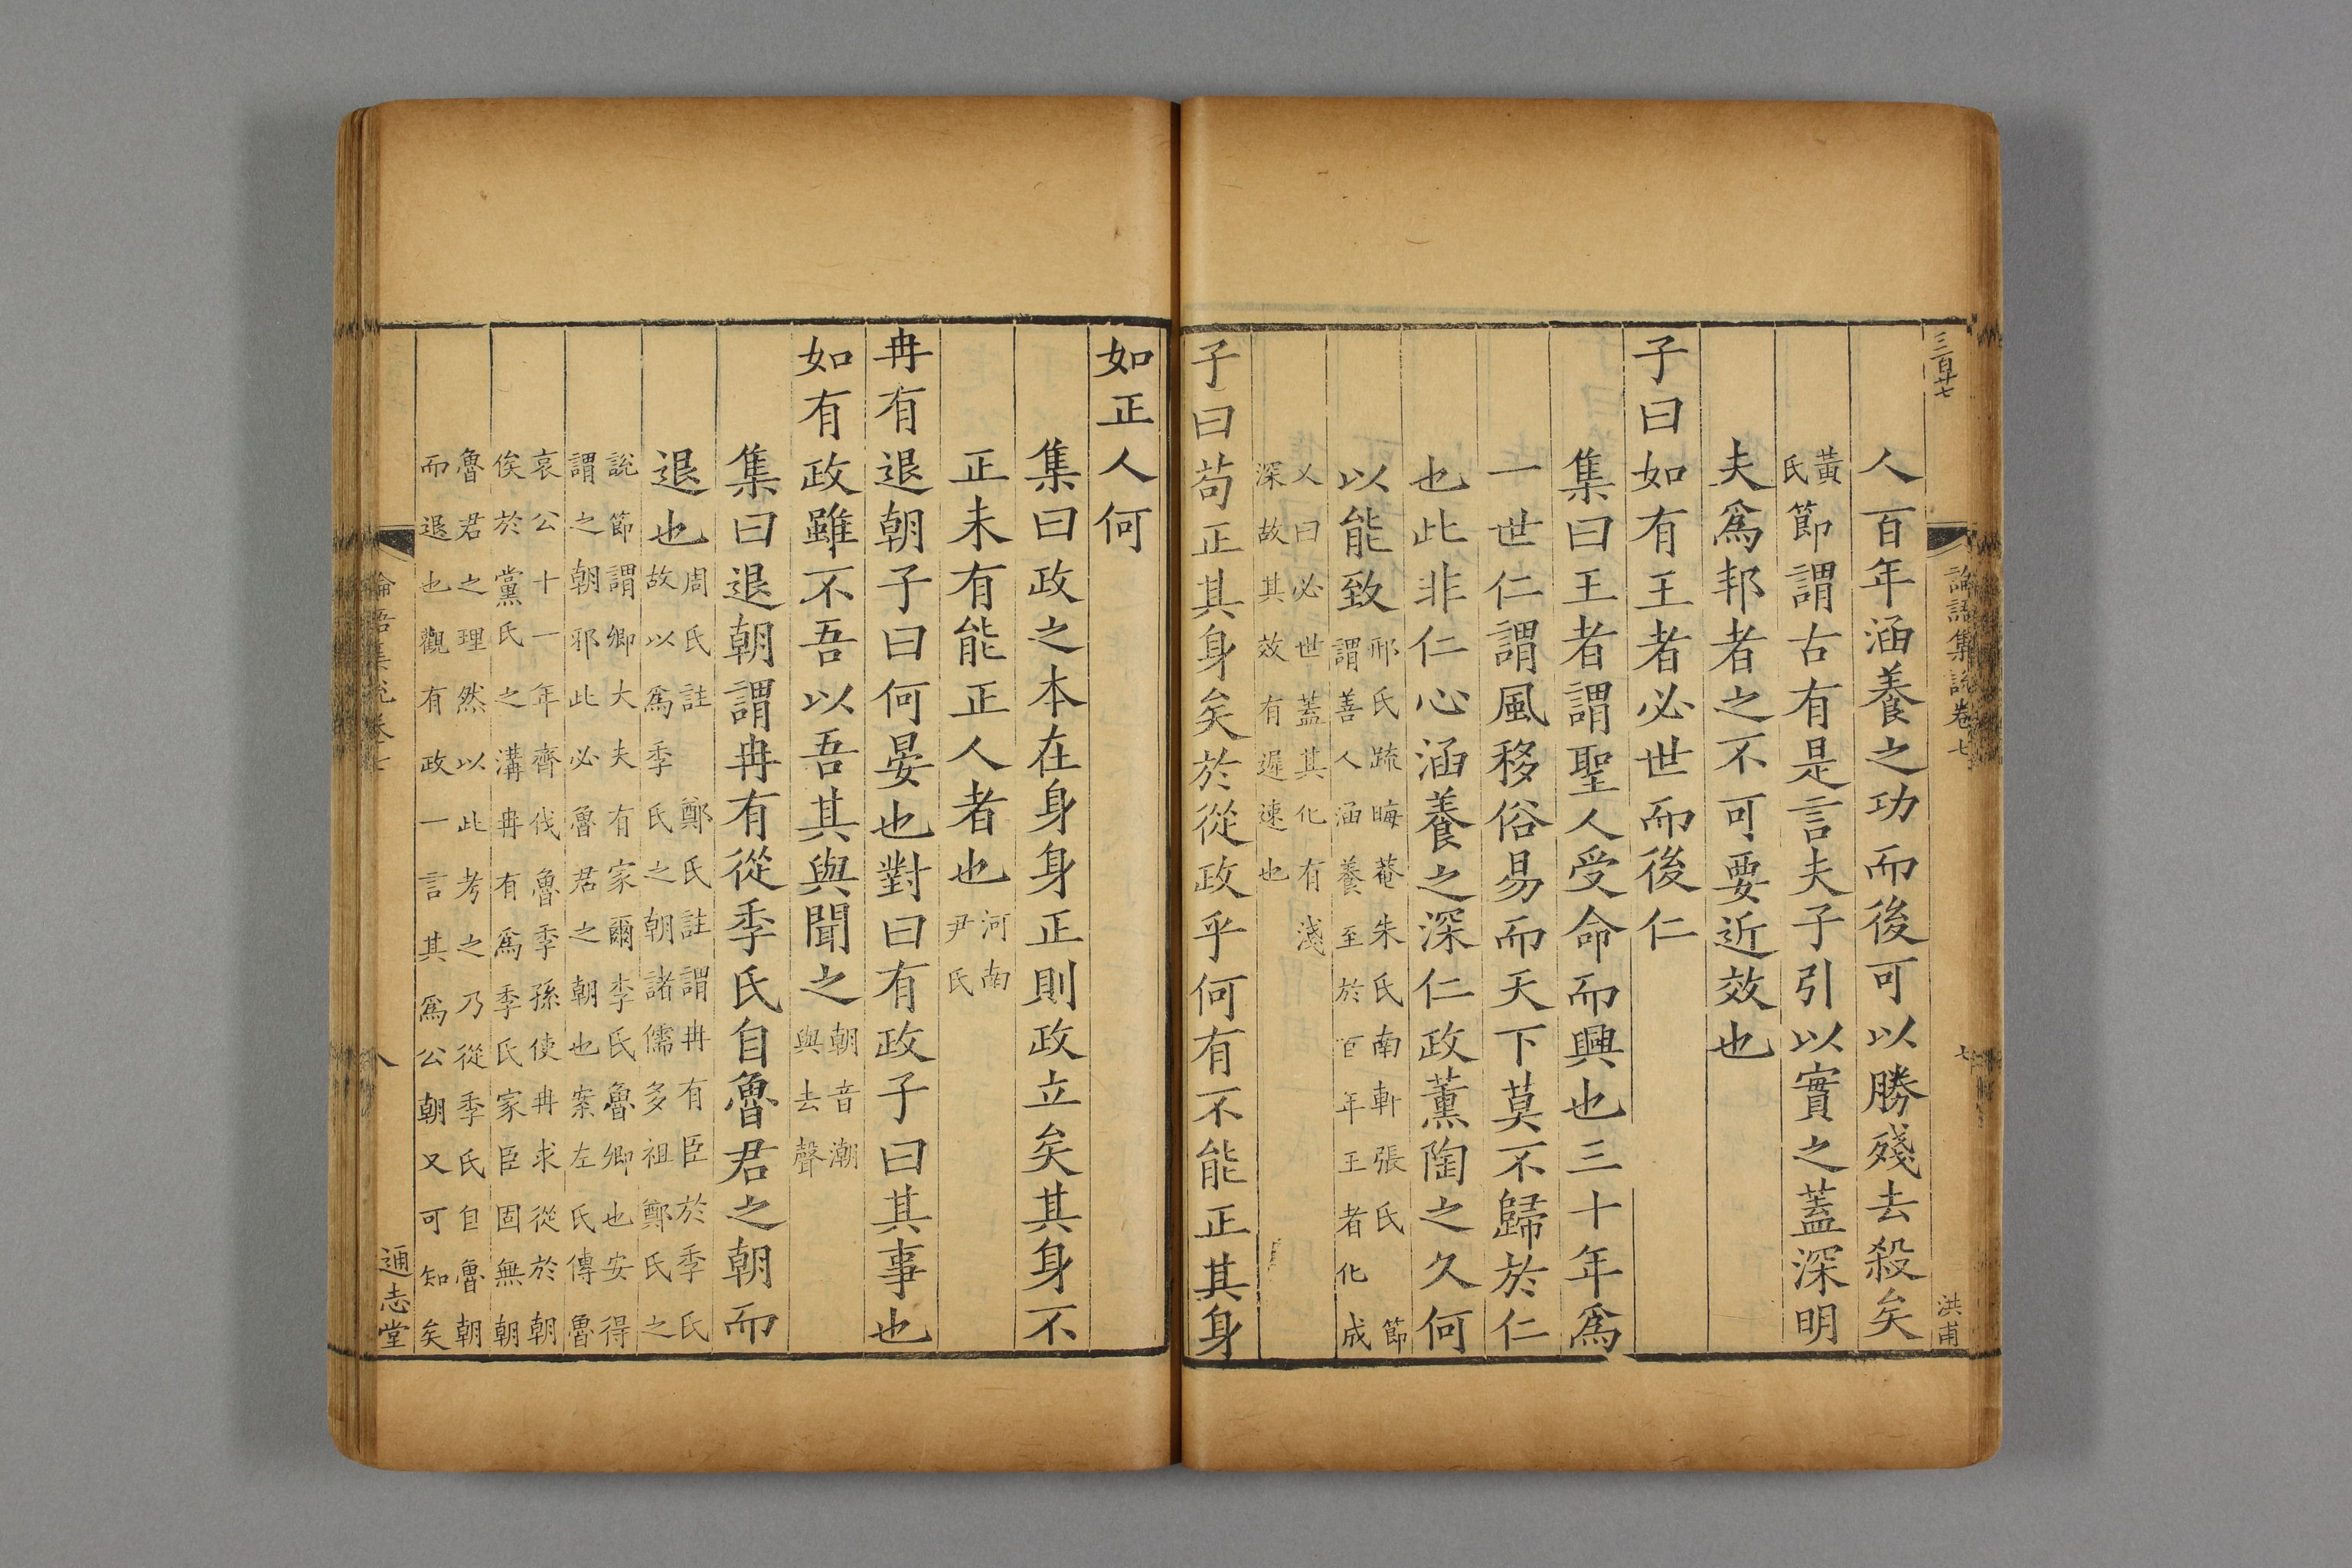 三百廿七
論語集說卷七
七
洪甫
人百年涵養之功而後可以勝殘去殺矣
黃氏節謂古有是言夫子引以實之蓋深明
夫爲邦者之不可要近效也
子曰如有王者必世而後仁
集曰王者謂聖人受命而興也三十年爲
一世仁謂風移俗易而天下莫不歸於仁
也此非仁心涵養之深仁政薰陶之久何
以能致邢氏疏晦菴朱氏南軒張氏節
謂善人涵養至於百年王者化成
又曰必世蓋其化有淺
深故其效有遲速也
子曰苟正其身矣於從政乎何有不能正其身
如正人何
集曰政之本在身身正則政立矣其身不
正未有能正人者也河南尹氏
冉有退朝子曰何晏也對曰有政子曰其事也
如有政雖不吾以吾其與聞之朝音潮與去聲
集曰退朝謂冉有從季氏自魯君之朝而
退也周氏註鄭氏註謂冉有臣於季氏
故以爲季氏之朝諸儒多祖鄭氏之
說節謂卿大夫有家爾季氏魯卿也安得
謂之朝邪此必魯君之朝也案左氏傳魯
哀公十一年齊伐魯季孫使冉求從於朝
俟於黨氏之溝冉有爲季氏家臣固無朝
魯君之理然以此考之乃從季氏自魯朝
而退也觀有政一言其爲公朝又可知矣
論語集說卷七
八
通志堂